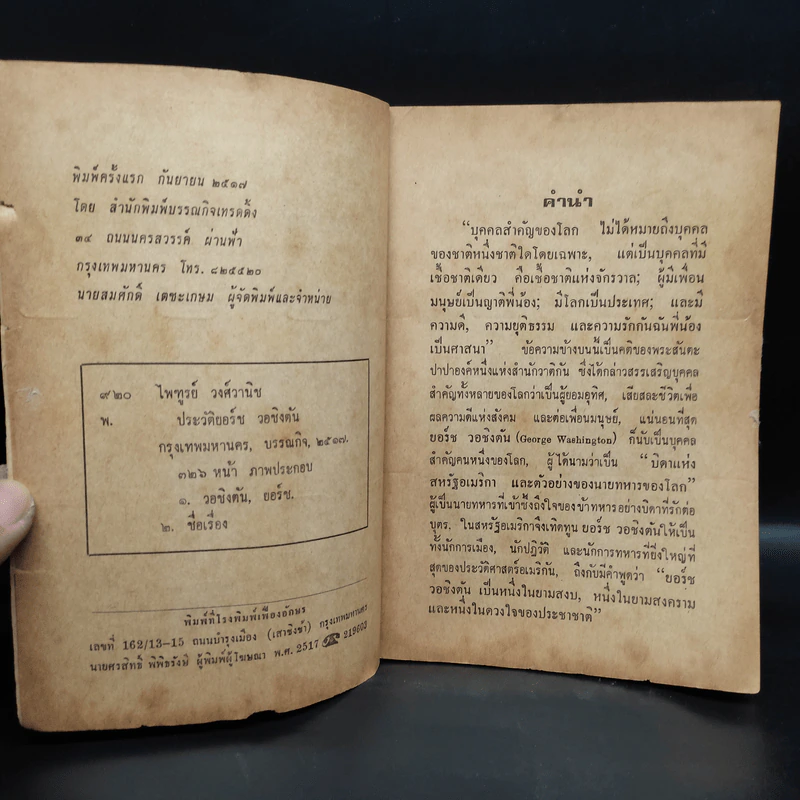 พิมพ์ครั้งแรก กันยายน ๒๕๑๗
โดย สำนักพิมพ์บรรณกิจเทรดดิ้ง
๓๔ ถนนนครสวรรค์ ผ่านฟ้า
กรุงเทพมหานคร โทร. ๘๒๕๕๒๐
นายสมศักดิ์ เตชะเกษม ผู้จัดพิมพ์และจำหน่าย
๙๒๐ ไพฑูรย์ วงศ์วานิช
พ. ประวัติยอร์ช วอชิงตัน
กรุงเทพมหานคร, บรรณกิจ, ๒๕๑๗.
๓๒๖ หน้า ภาพประกอบ
๑. วอชิงตัน, ยอร์ช.
๒. ชื่อเรื่อง
พิมพ์ที่โรงพิมพ์เฟื่องอักษร
เลขที่ 162/13-15 ถนนบำรุงเมือง (เสาชิงช้า) กรุงเทพมหานคร
นายศรสิทธิ์ พิพิธรังษี ผู้พิมพ์ผู้โฆษณา พ.ศ. 2517 ☎ 219603
คำนำ
“บุคคลสำคัญของโลก ไม่ได้หมายถึงบุคคล
ของชาติหนึ่งชาติใดโดยเฉพาะ, แต่เป็นบุคคลที่มี
เชื้อชาติเดียว คือเชื้อชาติแห่งจักรวาล; ผู้มีเพื่อน
มนุษย์เป็นญาติพี่น้อง; มีโลกเป็นประเทศ; และมี
ความดี, ความยุติธรรม และความรักกันฉันพี่น้อง
เป็นศาสนา” ข้อความข้างบนนี้เป็นคติของพระสันตะ
ปาปาองค์หนึ่งแห่งสำนักวาติกัน ซึ่งได้กล่าวสรรเสริญบุคคล
สำคัญทั้งหลายของโลกว่าเป็นผู้ยอมอุทิศ, เสียสละชีวิตเพื่อ
ผลความดีแห่งสังคม และต่อเพื่อนมนุษย์, แน่นอนที่สุด
ยอร์ช วอชิงตัน (George Washington) ก็นับเป็นบุคคล
สำคัญคนหนึ่งของโลก, ผู้ได้นามว่าเป็น “บิดาแห่ง
สหรัฐอเมริกา และตัวอย่างของนายทหารของโลก”
ผู้เป็นนายทหารที่เข้าซึ้งถึงใจของข้าทหารอย่างบิดาที่รักต่อ
บุตร. ในสหรัฐอเมริกาจึงเทิดทูน ยอร์ช วอชิงตันให้เป็น
ทั้งนักการเมือง, นักปฏิวัติ และนักการทหารที่ยิ่งใหญ่ที่
สุดของประวัติศาสตร์อเมริกัน, ถึงกับมีคำพูดว่า “ยอร์ช
วอชิงตัน เป็นหนึ่งในยามสงบ, หนึ่งในยามสงคราม
และหนึ่งในดวงใจของประชาชาติ”